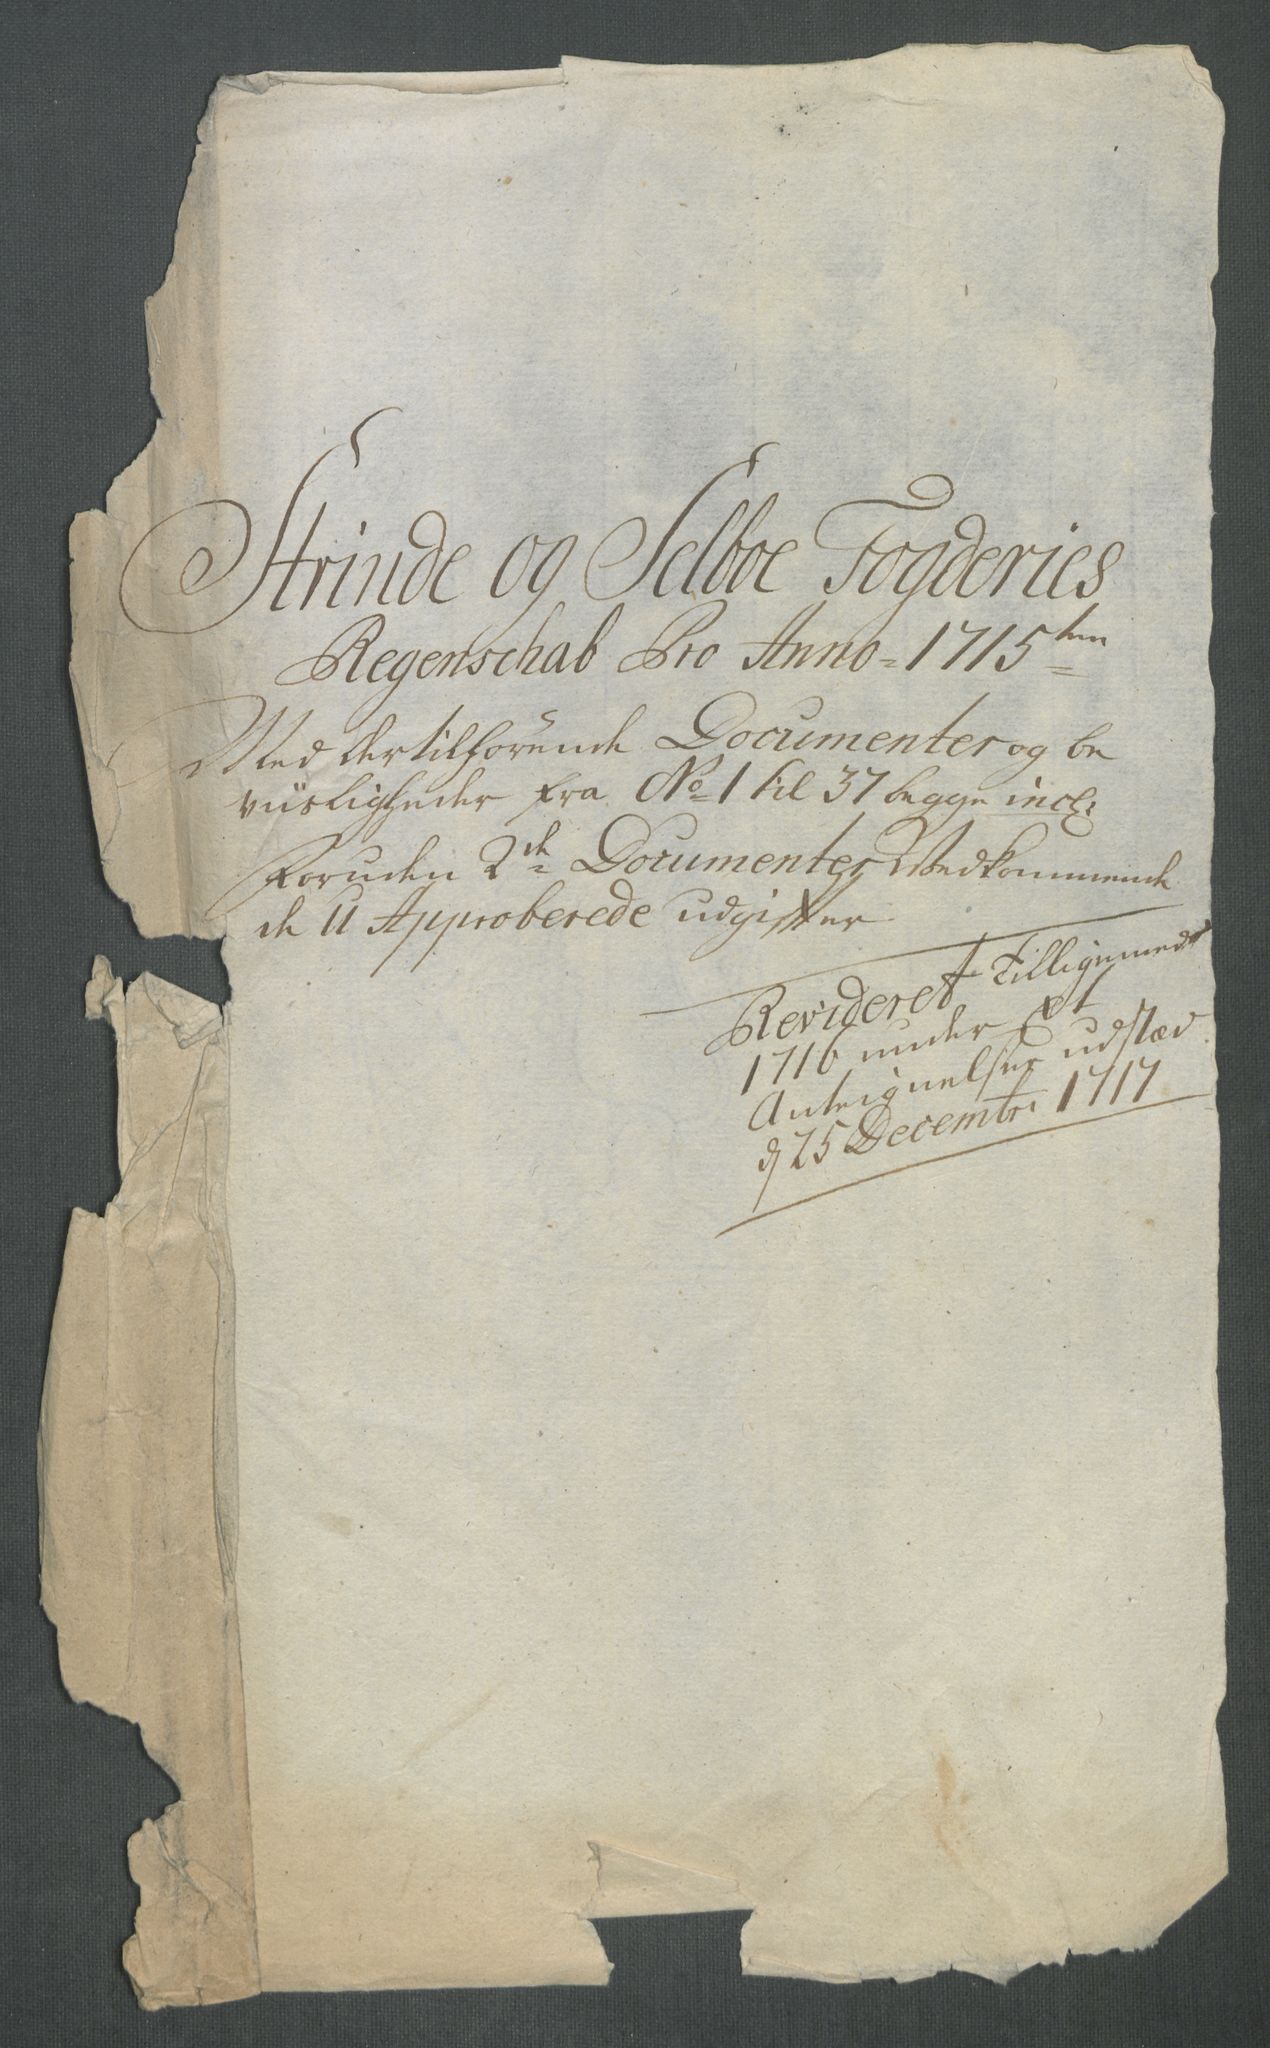 Strinde og Selboe Fogderies
Regenschab Pro Anno = 1715ten
Med dertilhörende Documenter og be
viisligheder fra No 1 til 37 begge incl:
Foruden 2de Documenter Vedkommende
de U Approberede udgifter
Revideret Tilligemed
1716 under Et
Anteignelser udstæd
d 25 Decembri 1717